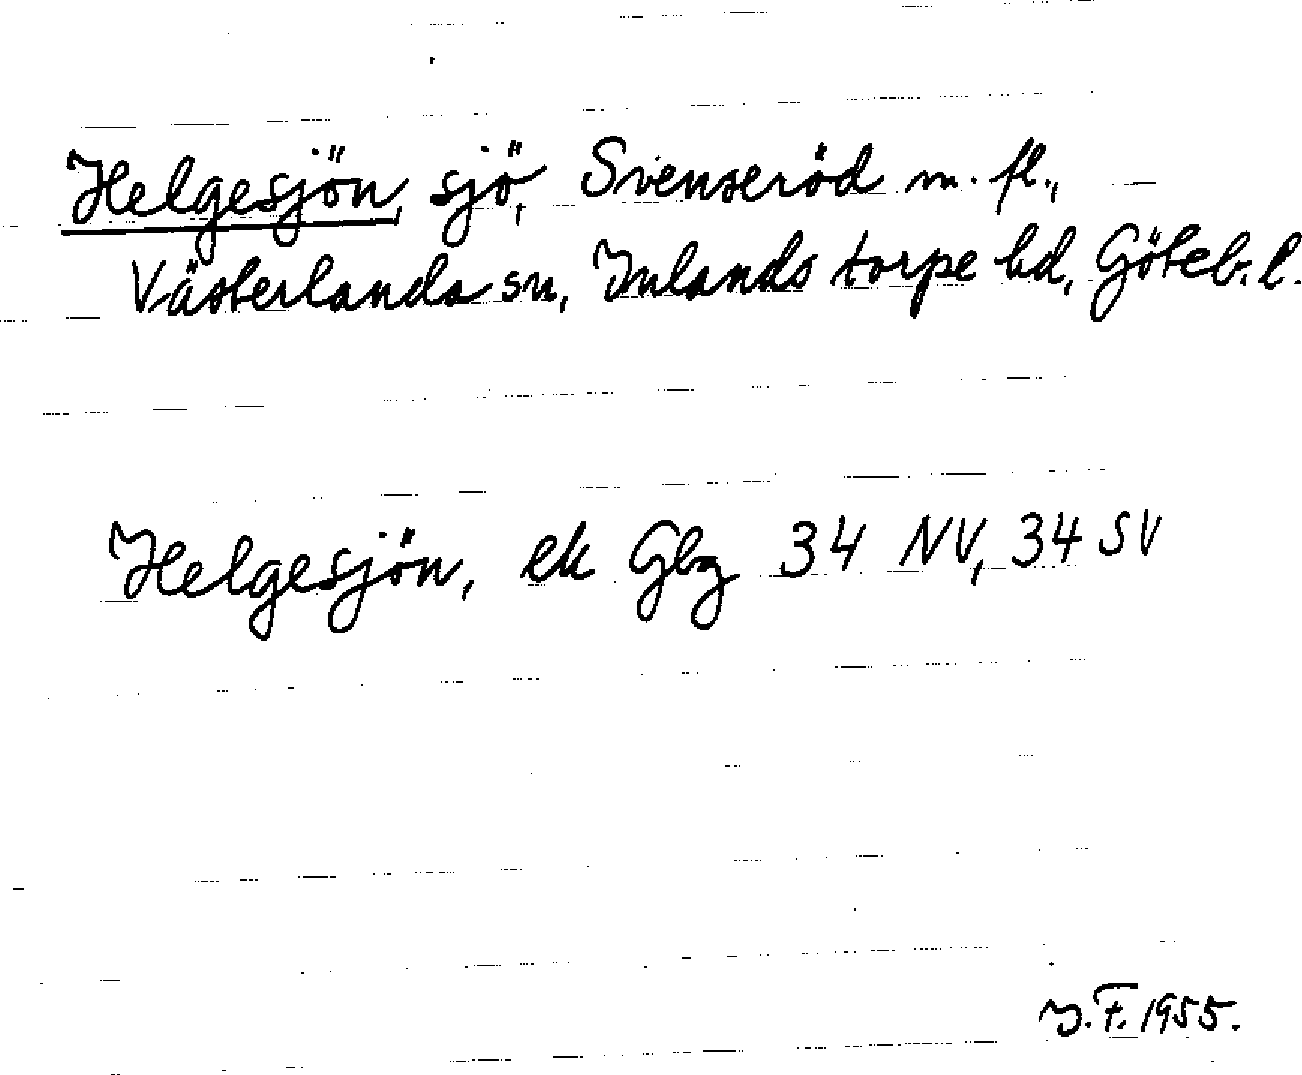 Helgesjön, sjö, Svenseröd m. fl.,
Västerlanda sn, Inlands torpe hd, Göteb. l.
Helgesjön, ek Gbg 34 NV, 34 SV
I. F. 1955.